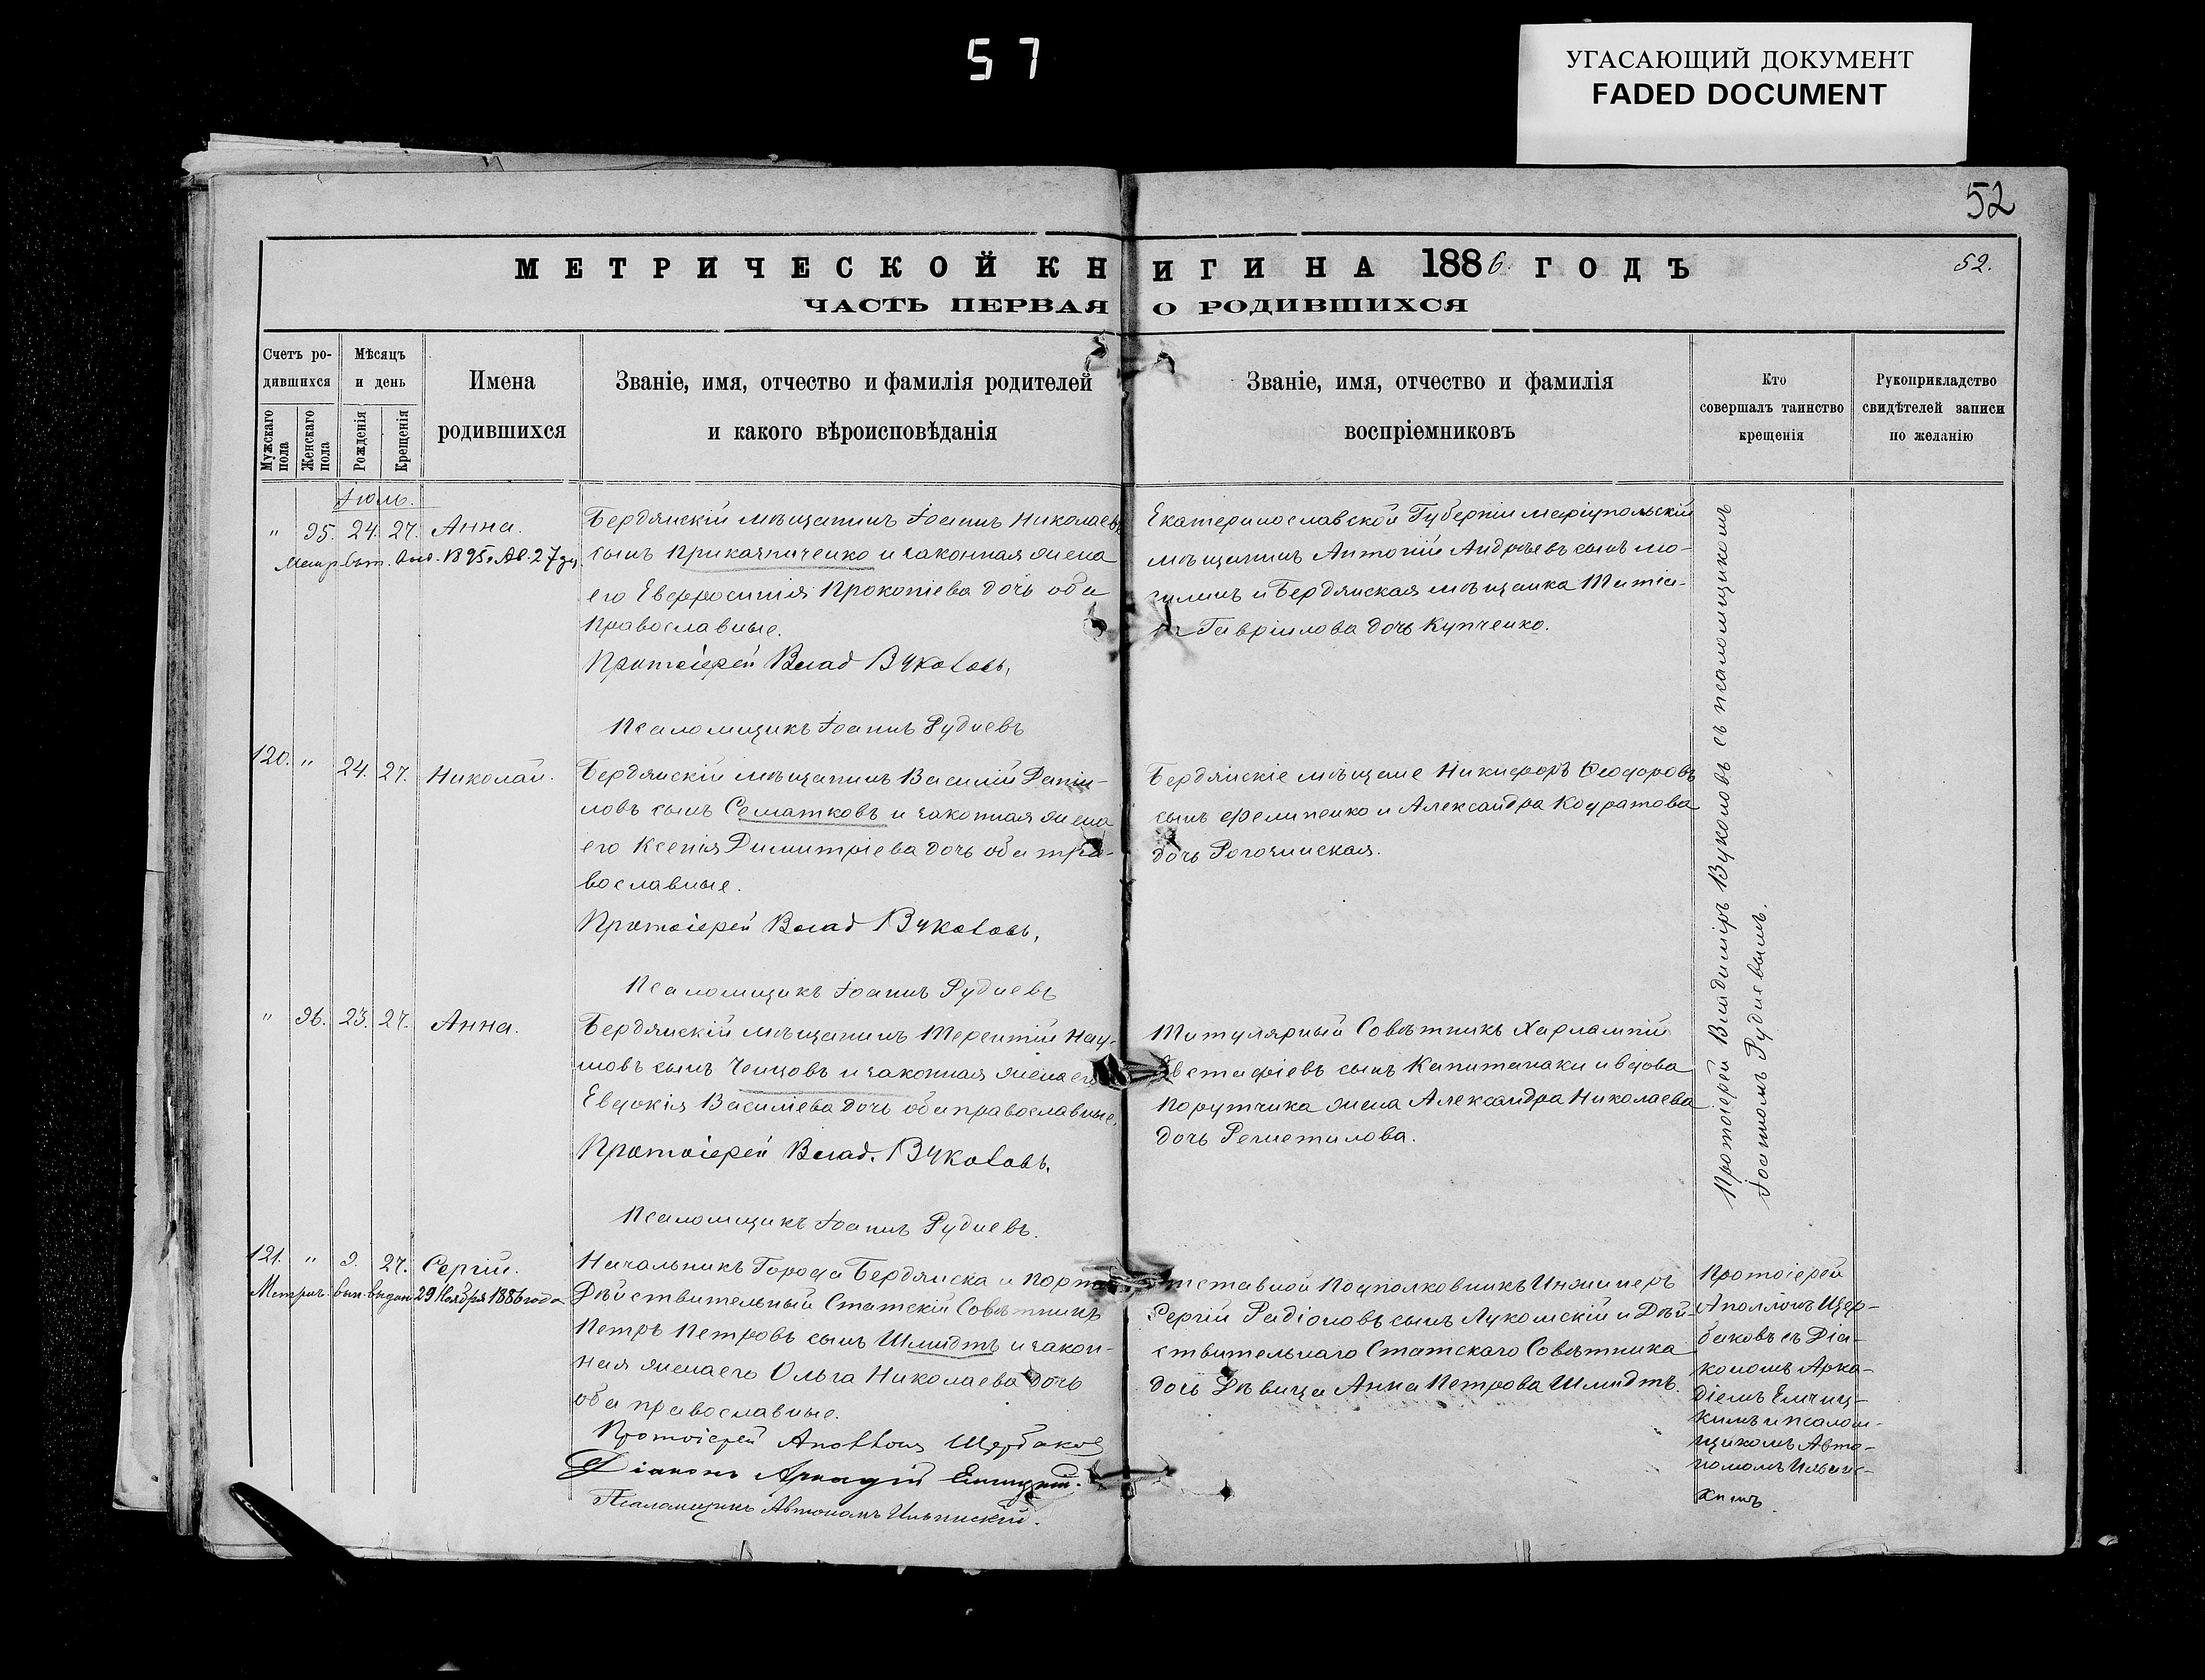 57
УГАСАЮЩИЙ ДОКУМЕНТ
FADED DOCUMENT
52
МЕТРИЧЕСКОЙ КНИГИ НА 1886. ГОДЪ
52.
ЧАСТЬ ПЕРВАЯ О РОДИВШИХСЯ
Счетъ ро-
дившихся
Мужскаго пола
Женскаго пола
Мѣсяцъ
и день
Рожденія
Крещенія
Имена
родившихся
Званіе, имя, отчество и фамилія родителей
и какого вѣроисповѣданія
Званіе, имя, отчество и фамилія
воспріемниковъ
Кто
совершалъ таинство
крещенія
Рукоприкладство
свидѣтелей записи
по желанію
Іюль.
" 95. 24. 27. Анна.
Бердянскій мѣщанинъ Іоаннъ Николаевъ
сынъ и законная жена
его Евфросинія Прокопіева дочь оба
православные.
Протоіерей Влад Вуколовъ,
Псаломщикъ Іоаннъ Рудневъ
Екатеринославской Губерніи маріупольскій
мѣщанинъ Антоній Андреевъ сынъ мо-
гилинъ и Бердянская мѣщанка Татіа-
на Гавріилова дочь Купченко.
120. " 24. 27. Николай.
Бердянскій мѣщанинъ Василій Даніи-
ловъ сынъ Сематковъ и законная жена
его Ксенія Димитріева дочь оба пра-
вославные.
Протоіерей Влад Вуколовъ,
Псаломщикъ Іоаннъ Рудневъ
Бердянскіе мѣщане Никифоръ Ѳеодоровъ
сынъ Филипенко и Александра Кодратова
дочь Рогочинская.
" 96. 23. 27. Анна.
Бердянскій мѣщанинъ Терентій Нау-
мовъ сынъ Ченцовъ и законная жена его
Евдокія Василіева дочь оба православные.
Протоіерей Влад. Вуколовъ,
Псаломщикъ Іоаннъ Рудневъ.
Титулярный Совѣтникъ Харлампій
Евстафіевъ сынъ Капитанаки и вдова
Порутчика жена Александра Николаева
дочь Решетилова.
Протоіерей Владиміръ Вуколовъ съ псаломщикомъ
Іоанномъ Рудневымъ.
121. " 9. 27. Сергій.
Метрич. вып. выдан 29 Ноября 1886 года
Начальникъ Города Бердянска и порта
Дѣйствительный Статскій Совѣтникъ
Петръ Петровъ сынъ Шмидтъ и закон-
ная жена его Ольга Николаева дочь
оба православные.
Протоіерей Аполлонъ Щербаковъ
Діаконъ Аркадій
Псаломщикъ Автономъ Ильинскій.
Отставной Подполковникъ Инжинеръ
Сергій Радіоновъ сынъ Лукомскій и Дѣй-
ствительнаго Статскаго Совѣтника
дочь Дѣвица Анна Петрова Шмидтъ.
Протоіерей
Аполлонъ Щер-
баковъ съ Діа-
кономъ Арка-
діемъ
и псалом-
щикомъ Авто-
номомъ Ильинс-
кимъ